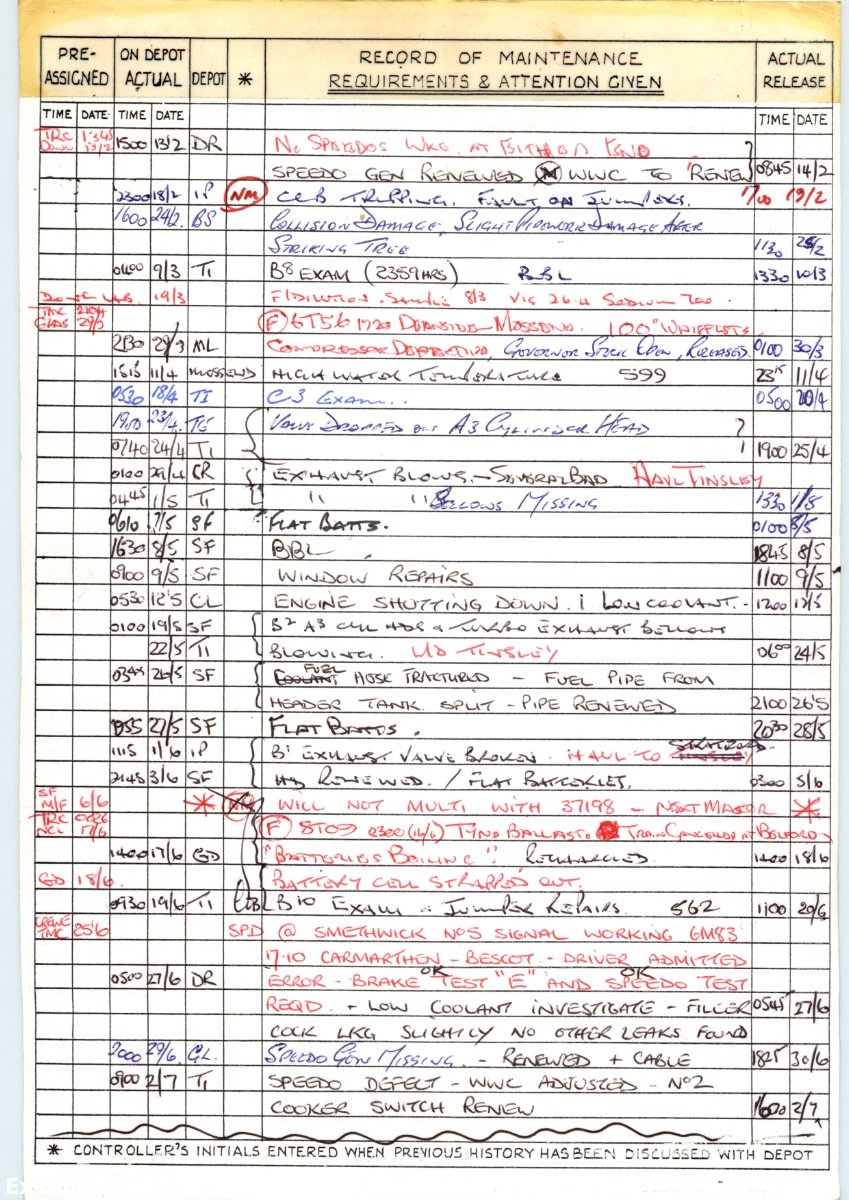 PRE-ASSIGNED ON DEPOT ACTUAL DEPOT * RECORD OF MAINTENANCE REQUIREMENTS & ATTENTION GIVEN ACTUAL RELEASE
TIME DATE TIME DATE TIME DATE
1500 13/2 DR No SPEEDOS WKG. AT
SPEEDO GEN RENEWED WWC TO RENEW 0845 14/2
2300 18/2 IP NM TRIPPING. FAULT ON JUMPERS. 1700 19/2
1600 24/2. BS COLLISION DAMAGE, SLIGHT PIPEWORK DAMAGE AFTER
STRIKING TREE 1130 25/2
0400 9/3 TI B8 EXAM (2359HRS) BBL 1330 10/3
19/3 Sample 8/3
TMC GLAS 29/3 (F) 6T56 1720 DEANSIDE - MOSSEND. 100" WHIFFLETS.
2130 29/3 ML COMPRESSOR DEFECTIVE, GOVERNOR STUCK OPEN, RELEASED. 0100 30/3
1515 11/4 MOSSEND HIGH WATER TEMPERATURE 599 2315 11/4
0530 18/4 TI C3 EXAM.. 0500 20/4
1900 23/4 TE VALVE DROPPED ON A3 CYLINDER HEAD
0740 24/4 TI 1900 25/4
0100 29/4 CR EXHAUST BLOWS. - SEVERAL BAD HAUL TINSLEY
0445 1/5 TI " " BELLOWS MISSING 1330 1/5
0610 7/5 SF FLAT BATTS. 0100 8/5
1630 8/5 SF BBL 1845 8/5
0900 9/5 SF WINDOW REPAIRS 1100 9/5
0530 12'5 CL ENGINE SHUTTING DOWN. LOW COOLANT. - 1200 12/5
0100 19/5 SF B2 A3 CYL HDS & TURBO EXHAUST BELLOWS
22/5 TI BLOWING. L/D TINSLEY 0600 24/5
0345 26/5 SF FUEL
COOLANT HOSE FRACTURED - FUEL PIPE FROM
HEADER TANK SPLIT - PIPE RENEWED 2100 26'5
27/5 SF FLAT BATTS. 28/5
1115 1/6 IP B1 EXHAUST VALVE BROKEN. HAUL TO STRATFORD
2145 3/6 SF HD RENEWED. / FLAT BATTERIES. 0300 5/6
SF M/F 6/6 * WILL NOT MULTI WITH 37198 - *
TRC NCL 17/6 (F) 8T09 2300 (16/6) TYNE BALLAST TRAIN CANCELLED AT BELFORD
1400 17/6 GD "BATTERIES BOILING" RECHARGED 1400 18/6
GD 18/6. BATTERY CELL STRAPPED OUT.
0930 19/6 TI B10 EXAM & JUMPER REPAIRS. 562 1100 20/6
CREWE TMC 25'6 SPD @ SMETHWICK NO5 SIGNAL WORKING 6M83
17-10 CARMARTHEN - BESCOT - DRIVER ADMITTED
0500 27/6 DR ERROR - BRAKE OK TEST "E" AND OK SPEEDO TEST
REQD. + LOW COOLANT INVESTIGATE - FILLER 0545 27/6
COCK LKG SLIGHTLY NO OTHER LEAKS FOUND
2000 29/6 GL. SPEEDO GEN MISSING. - RENEWED + CABLE 1825 30/6
0900 2/7 TI SPEEDO DEFECT - WWC ADJUSTED - No2
COOKER SWITCH RENEW 1600 2/7
* CONTROLLER'S INITIALS ENTERED WHEN PREVIOUS HISTORY HAS BEEN DISCUSSED WITH DEPOT